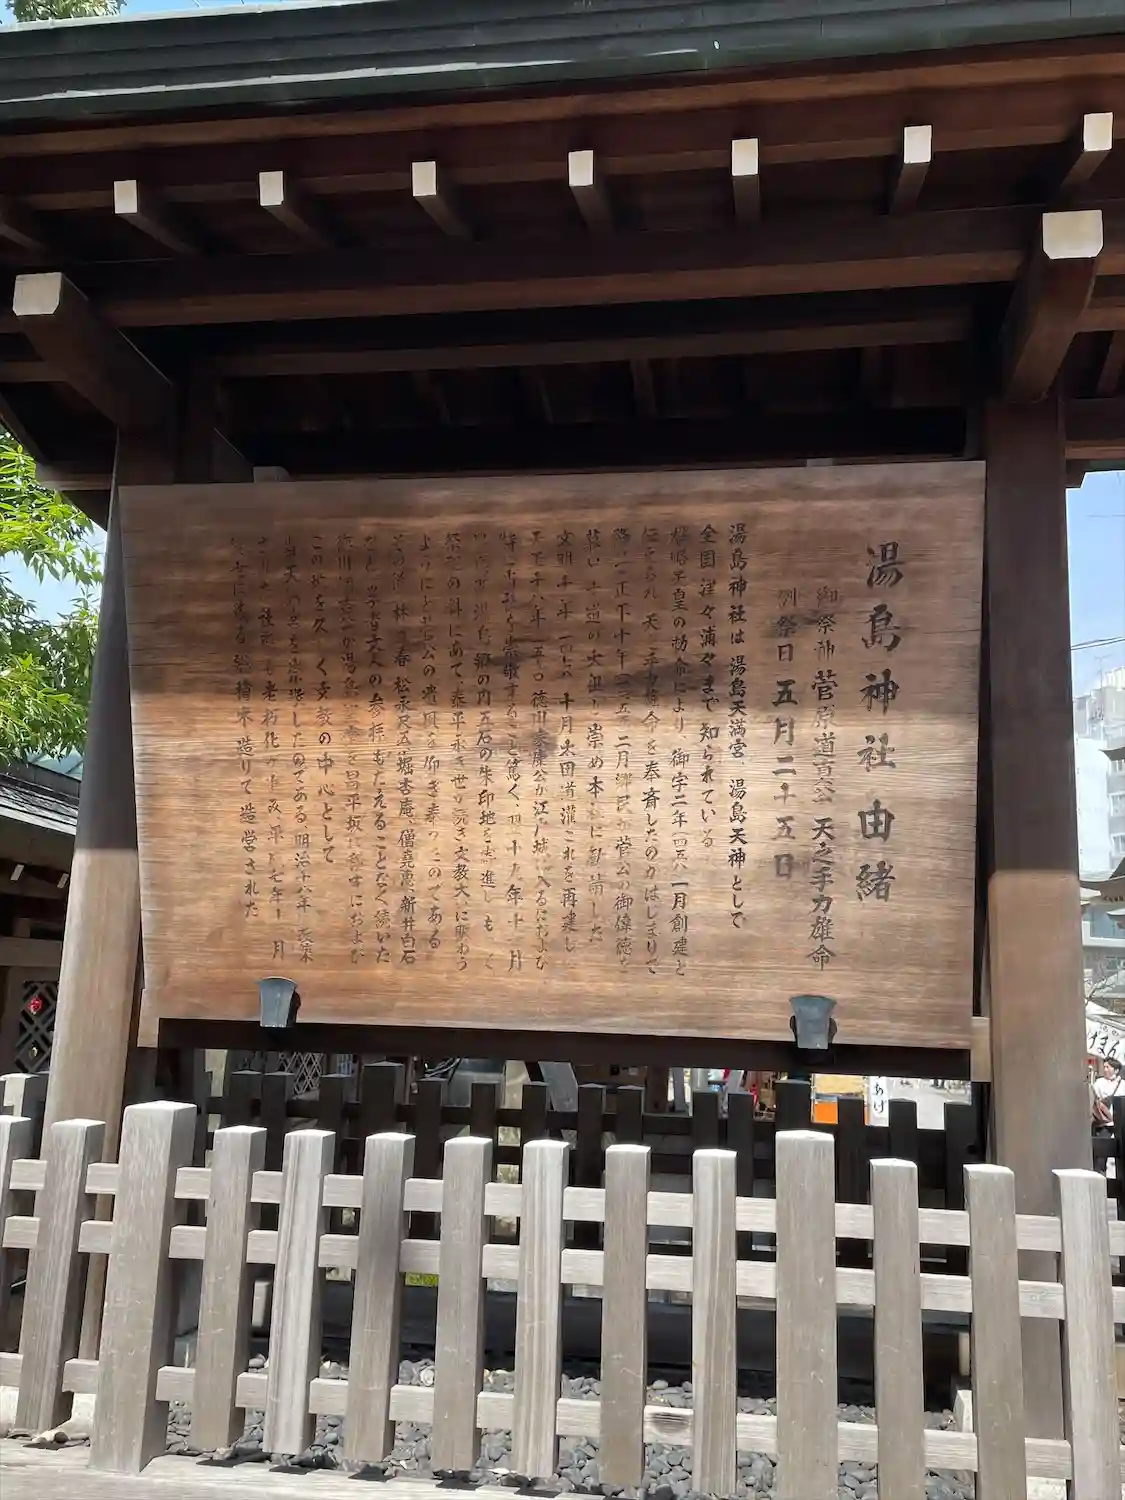 湯島神社由緒
御祭神 菅原道真公 天之手力雄命
例祭日 五月二十五日
湯島神社は湯島天満宮、湯島天神として
全国津々浦々まで知られている
雄略天皇の勅命により、御宇二年四五八一月創建と
伝えられ、天之手力雄命を奉斎したのがはじまりで
降って正平十年一三五五二月郷民が菅公の御偉徳を
慕い 本社に勧請した
文明十年一四七八十月太田道灌これを再建し
天正十八年一五九〇徳川家康公が江戸城に入るにおよび
特に当社を崇敬すること篤く、翌十九年十一月
郷の内五石の朱印地を寄進し もって
祭祀の料にあて、泰平永き世が続き文教大いに賑わう
ようにと菅公の遺風を仰ぎ奉ったのである
その後、林道春、松永尺五、堀杏庵、僧堯恵、新井白石
などの学者文人の参拝もたえることなく続いた
徳川綱吉公が湯島聖堂を昌平坂に
この地を久しく文教の中心として
天満宮を崇敬したのである 明治十八年
社殿も老朽化 平成七年十二月
後世に残る総檜木造りで造営された
けまん
あげ